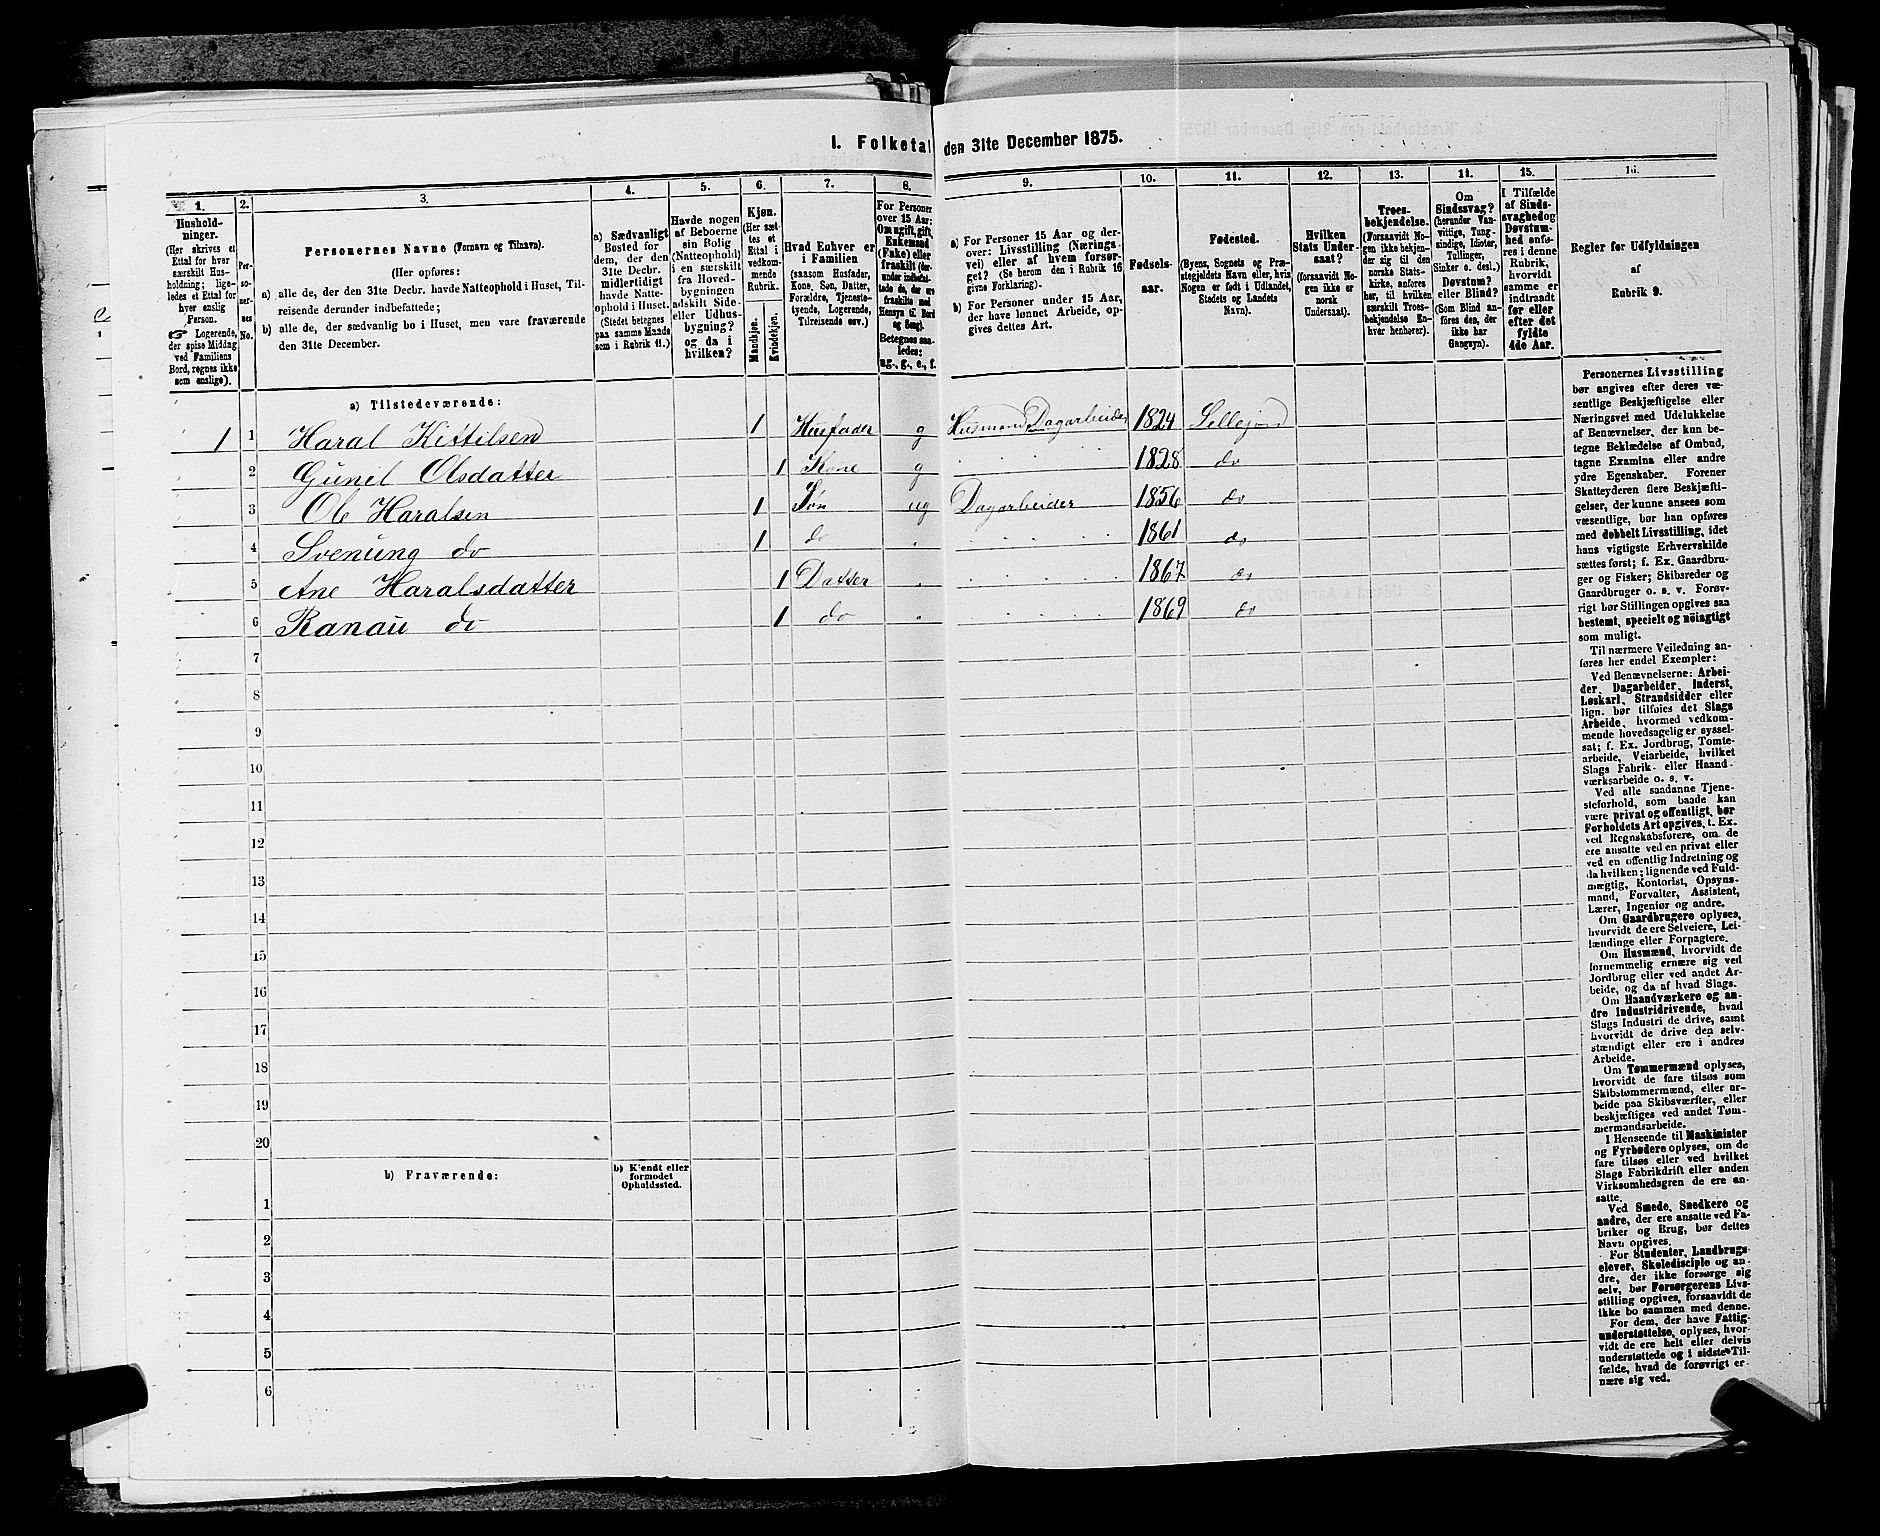 I. Folketal den 31te December 1875.
1. 2. 3. 4. 5. 6. 7. 8. 9. 10. 11. 12. 13. 14. 15. 16.
Hushold-
ninger.
(Her skrives et
Ettal for hver
særskilt Hus-
holdning; lige-
ledes et Ettal for
hver enslig
Person.
☞ Logerende,
der spise Middag
ved Familiens
Bord, regnes ikke
som enslige).
Per-
soner-
nes
No.
Personernes Navne (Fornavn og Tilnavn).
(Her opføres:
a) alle de, der den 31te Decbr. havde Natteophold i Huset, Til-
reisende derunder indbefattede;
b) alle de, der sædvanlig bo i Huset, men vare fraværende
den 31te December.
a) Sædvanligt
Bosted for
dem, der den
31te Decbr.
midlertidigt
havde Natte-
ophold i Huset.
(Stedet betegnes
paa samme Maade
som i Rubrik 11.)
Havde nogen
af Beboerne
sin Bolig
(Natteophold)
i en særskilt
fra Hoved-
bygningen
adskilt Side-
eller Udhus-
bygning?
og da i
hvilken?
Kjøn.
(Her sæt-
tes et
Ettal i
vedkom-
mende
Rubrik.
Mandkjøn.
Kvindekjøn.
Hvad Enhver er
i Familien
(saasom Husfader,
Kone, Søn, Datter,
Forældre, Tjeneste-
tyende, Logerende,
Tilreisende osv.)
For Personer
over 15 Aar:
Om ugift, gift,
Enkemand
(Enke) eller
fraskilt (der-
under indbefat-
tede de, der ere
fraskilte med
Hensyn til Bord
og Seng).
Betegnes saa-
ledes:
ug., g., e., f.
a) For Personer 15 Aar og der-
over: Livsstilling (Nærings-
vei) eller af hvem forsør-
get? (Se herom den i Rubrik 16
givne Forklaring).
b) For Personer under 15 Aar,
der have lønnet Arbeide, op-
gives dettes Art.
Fødsels-
aar.
Fødested.
(Byens, Sognets og Præ-
stegjeldets Navn eller, hvis
Nogen er født i Udlandet,
Stedets og Landets
Navn).
Hvilken
Stats Under-
saat?
(forsaavidt No-
gen ikke er
norsk
Undersaat).
Troes-
bekjendelse.
(Forsaavidt No-
gen ikke bekjen-
der sig til den
norske Stats-
kirke, anføres
her, til hvilken
særskilt Troes-
bekjendelse En-
hver henhører).
Om
Sindssvag?
(herunder Van-
vittige, Tung-
sindige, Idioter,
Tullinger,
Sinker o. desl.)
Døvstum?
eller Blind?
(Som Blind an-
føres des, der
ikke har
Gangsyn).
I Tilfælde
af Sinds-
svaghed og
Døvstum-
hed anfø-
res i denne
Rubrik,
hvorvidt
samme er
indtraadt
før eller
efter det
fyldte
4de Aar.
Regler for Udfyldningen
af
Rubrik 9.
a) Tilstedeværende:
1 1 Haral Kittilsen 1 Husfader g Husmand Dagarbeider 1824 Sillejord
2 Gunil Olsdatter 1 Kone g 1828 do
3 Ole Haralsen 1 Søn ug Dagarbeider 1856 do
4 Svenung do 1 do 1861 do
5 Ane Haralsdatter 1 Datter 1867 do
6 Ranau do 1 do 1869 do
7
8
9
10
11
12
13
14
15
16
17
18
19
20
b) Fraværende:
b) Kjendt eller
formodet
Opholdssted.
1
2
3
4
5
6
Personernes Livsstilling
bør angives efter deres væ-
sentlige Beskjæftigelse eller
Næringsvei med Udelukkelse
af Benævnelser, der kun be-
tegne Beklædelse af Ombud,
tagne Examina eller andre
ydre Egenskaber. Forener
Skatteyderen flere Beskjæfti-
gelser, der kunne ansees som
væsentlige, bør han opføres
med dobbelt Livsstilling, idet
hans vigtigste Erhvervskilde
sættes først; f. Ex. Gaardbru-
ger og Fisker; Skibsreder og
Gaardbruger o. s. v. Forøv-
rigt bør Stillingen opgives saa
bestemt, specielt og nöiagtigt
som muligt.
Til nærmere Veiledning an-
føres her endel Exempler:
Ved Benævnelserne: Arbei-
der, Dagarbeider, Inderst,
Løskarl, Strandsidder eller
lign. bør tilføies det Slags
Arbeide, hvormed vedkom-
mende hovedsagelig er syssel-
sat; f. Ex. Jordbrug, Tomte-
arbeide, Veiarbeide, hvilket
Slags Fabrik- eller Haand-
værksarbeide o. s. v.
Ved alle saadanne Tjene-
steforhold, som baade kan
være privat og offentligt, bør
Forholdets Art opgives, t. Ex.
ved Regnskabsførere, om de
ere ansatte ved en privat eller
ved en offentlig Indretning og
da hvilken; lignende ved Fuld-
mægtig, Kontorist, Opsyns-
mand, Forvalter, Assistent,
Lærer, Ingeniør og andre.
Om Gaardbrugere oplyses,
hvorvidt de ere Selveiere, Lei-
lændinge eller Forpagtere.
Om Husmænd, hvorvidt de
fornemmelig ernære sig ved
Jordbrug eller ved andet Ar-
beide, og da af hvad Slags.
Om Haandværkere og an-
dre Industridrivende, hvad
Slags Industri de drive, samt
hvorvidt de drive den selv-
stændigt eller ere i andres
Arbeide.
Om Tømmermænd oplyses,
hvorvidt de fare tilsøs som
Skibstømmermænd, eller ar-
beide paa Skibsværfter, eller
beskjæftiges ved andet Tøm-
mermandsarbeide.
I Henseende til Maskinister
og Fyrbødere oplyses, om de
fare tilsøs eller ved hvilket
Slags Fabrikdrift eller anden
Virksomhedsgren de ere an-
satte.
Ved Smede, Snedkere og
andre, der ere ansatte ved Fa-
briker og Brug, bør dettes
Navn opgives.
For Studenter, Landbrugs-
elever, Skoledisciple og an-
dre, der ikke forsørge sig
selv, bør Forsørgerens Livs-
stilling opgives, forsaavidt de
ikke bo sammen med denne.
For dem, der have Fattig-
understøttelse, oplyses, hvor-
vidt de ere helt eller delvis
understøttede og i sidste Til-
fælde, hvad de forøvrigt er-
nære sig ved.